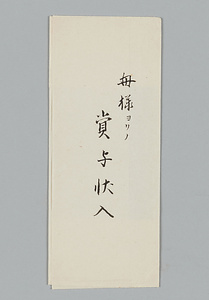 毋様ヨリノ
賞与状入